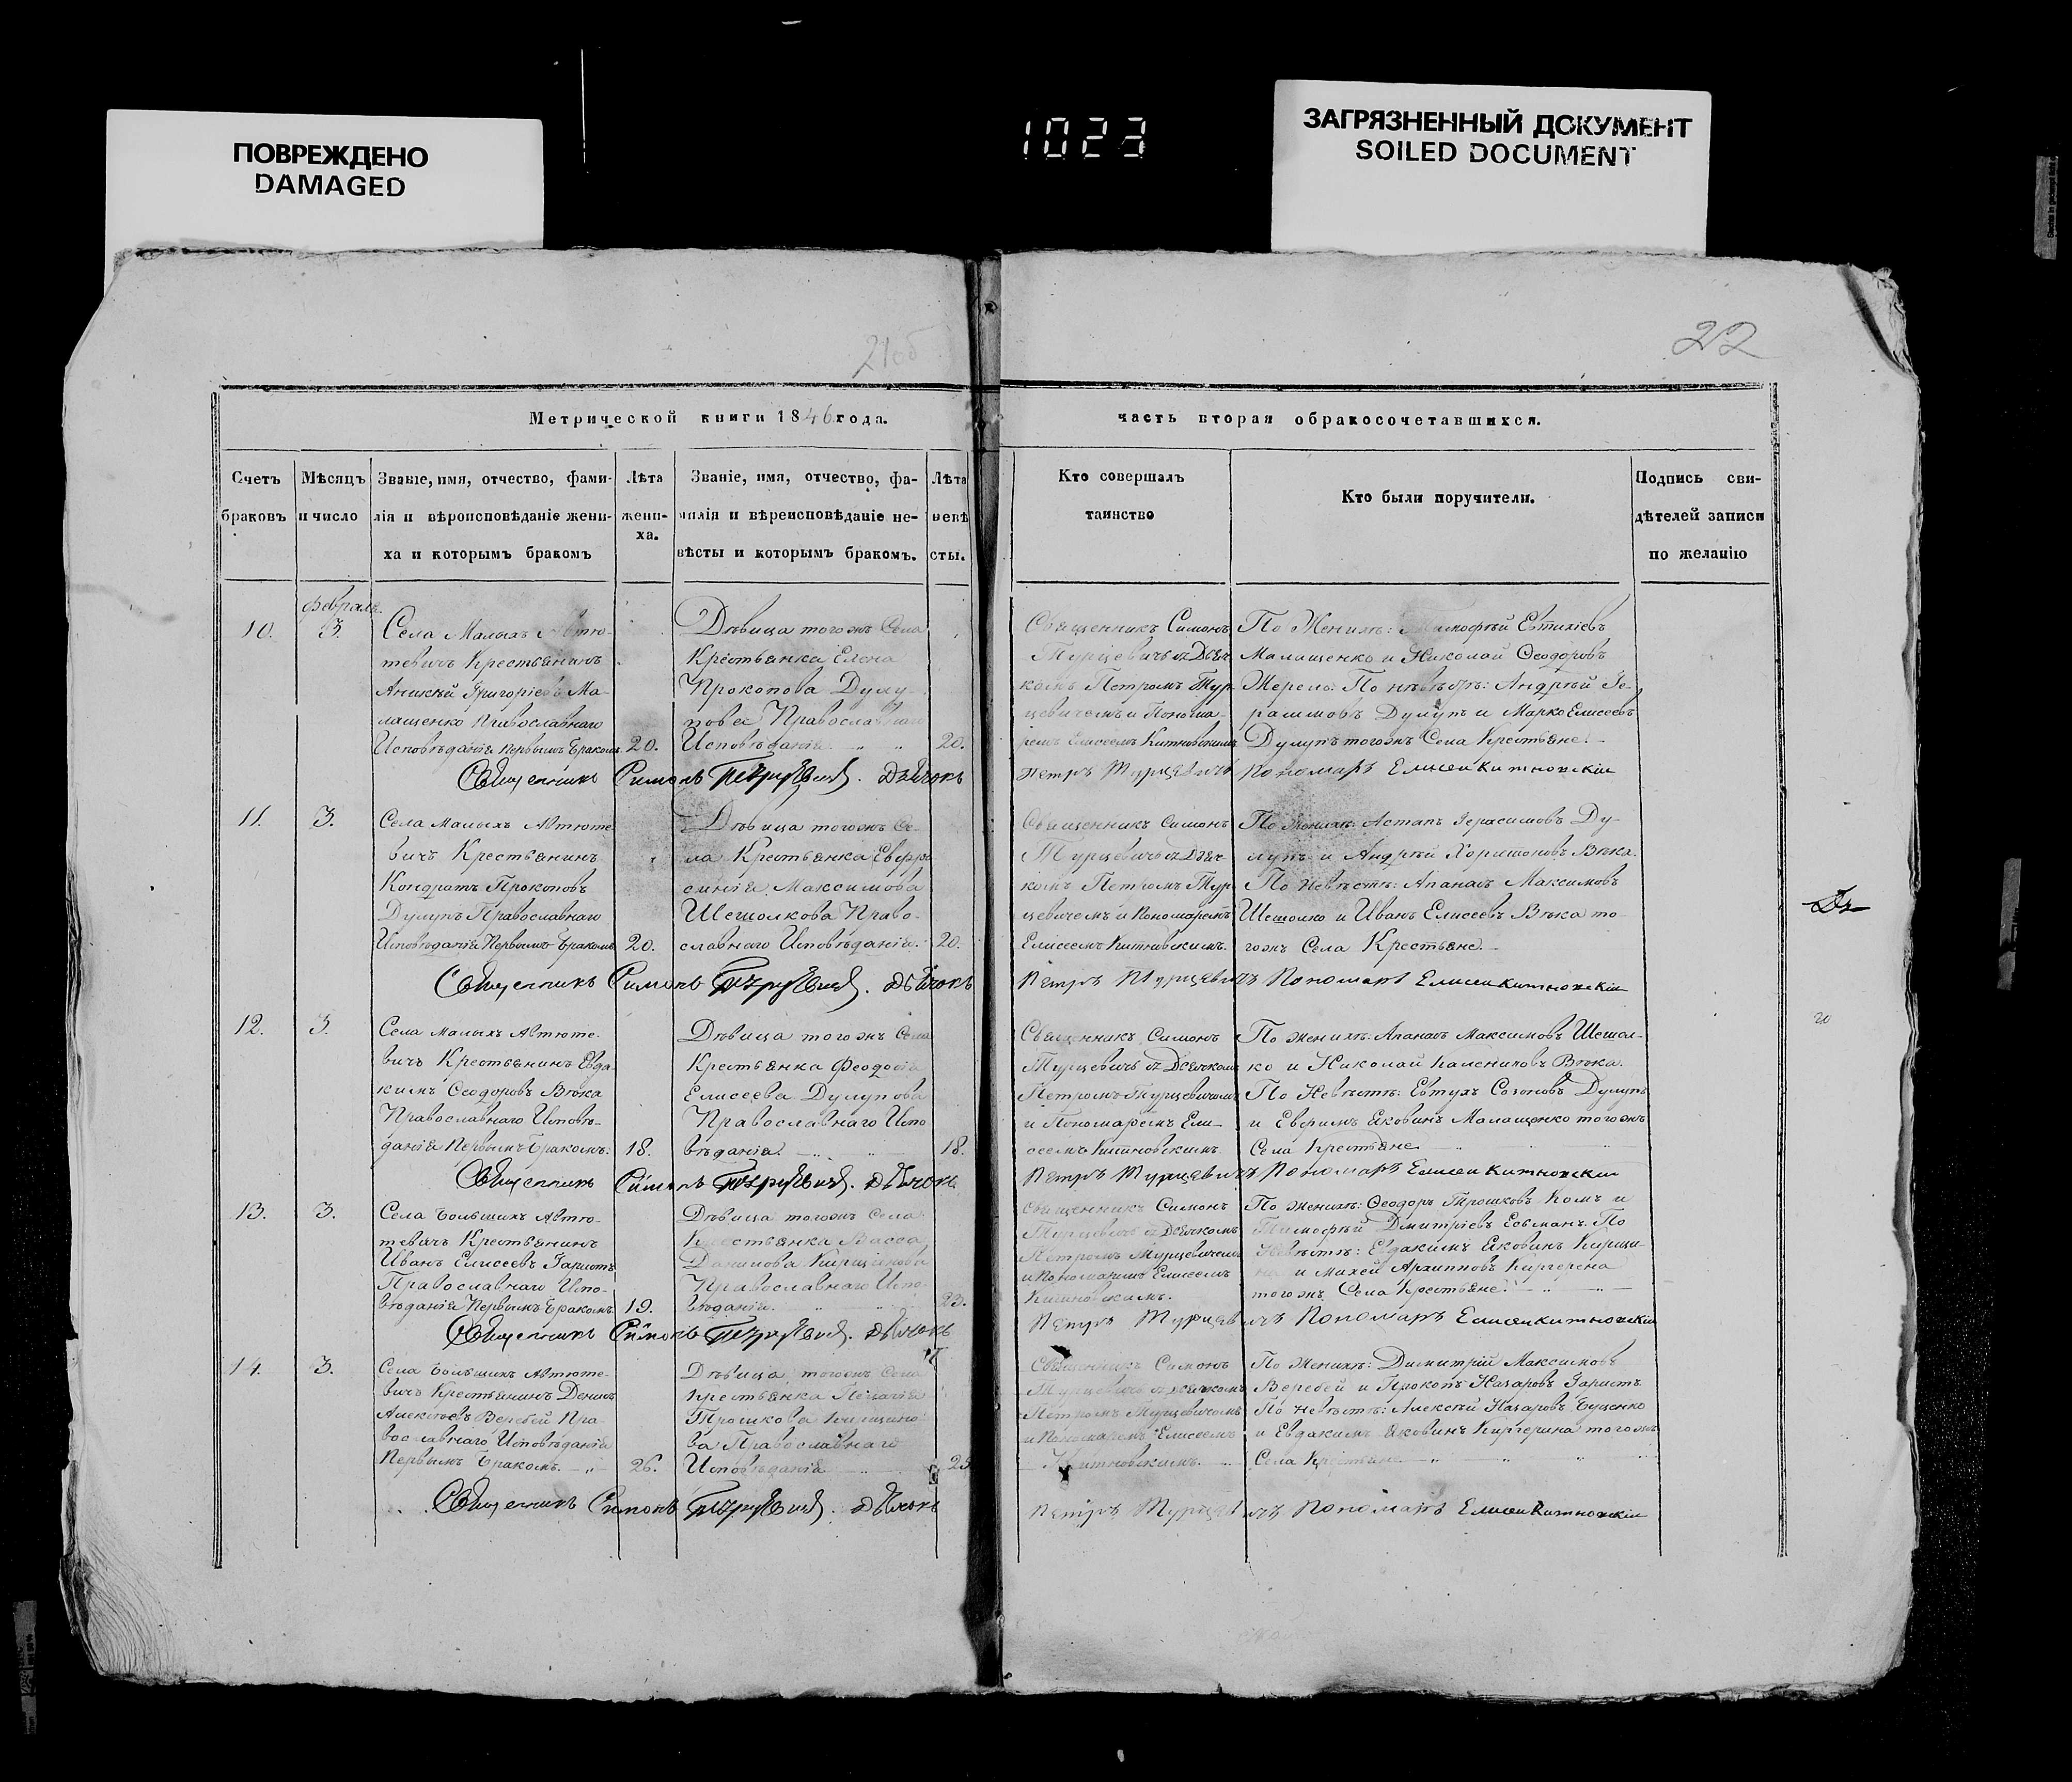 ПОВРЕЖДЕНО
DAMAGED
1023
ЗАГРЯЗНЕННЫЙ ДОКУМЕНТ
SOILED DOCUMENT
21об
22
Метрической книги 1846 года.
часть вторая обракосочетавшихся.
Счетъ браковъ
Мѣсяцъ и число
Званіе, имя, отчество, фами-
лія и вѣроисповѣданіе жени-
ха и которымъ бракомъ
Лѣта
жени-
ха.
Званіе, имя, отчество, фа-
милія и вѣроисповѣданіе не-
вѣсты и которымъ бракомъ.
Лѣта
невѣ
сты.
Кто совершалъ
таинство
Кто были поручители.
Подпись сви-
дѣтелей записи
по желанію
февраля
10.
3.
Села Малыхъ Автю-
тевичъ Крестьянинъ
Аникѣй Григоріевъ Ма-
лащенко Православнаго
Исповѣданія первымъ бракомъ
20.
Дѣвица тогожъ Села
Крестьянка Елена
Прокопова Дулу-
пова Православнаго
Исповѣданія
20.
Священникъ Симонъ
Турцевичъ съ Дьяч-
комъ Петромъ Тур-
цевичемъ и Понома-
ремъ Елисеемъ Китновскимъ
По Женихѣ: Тимофѣй Евтихіевъ
Малащенко и Николай Ѳеодоровъ
Жерело: По невѣстѣ: Андрѣй Ге-
расимовъ Дулупъ и Марко Елисеевъ
Дулупъ тогожъ Села Крестьяне.
Священникъ Симонъ Турцевичъ. Дьячокъ
Петръ Турцевичъ Пономарь Елисей Китновскій
11.
3.
Села Малыхъ Автюте-
вичъ Крестьянинъ
Кондратъ Прокоповъ
Дулупъ Православнаго
Исповѣданія Первымъ бракомъ
20.
Дѣвица тогожъ Се-
ла Крестьянка Евфро
синія Максимова
Шешолкова Право-
славнаго Исповѣданія.
20.
Священникъ Симонъ
Турцевичъ съ Дьяч-
комъ Петромъ Тур-
цевичемъ и Пономаремъ
Елисеемъ Китновскимъ.
По Женихѣ: Астапъ Герасимовъ Ду-
лупъ и Андрѣй Харитоновъ Вѣка.
По Невѣстѣ: Апанасъ Максимовъ
Шешолко и Иванъ Елисеевъ Вѣка то-
гожъ Села Крестьяне.
Священникъ Симонъ Турцевичъ. Дьячокъ
Петръ Турцевичъ Пономарь Елисей Китновскій
12.
3.
Села Малыхъ Автюте-
вичъ Крестьянинъ Евда-
кимъ Ѳеодоровъ Вѣка
Православнаго Исповѣ-
данія Первымъ бракомъ.
18.
Дѣвица тогожъ Села
Крестьянка Феодосія
Елисеева Дулупова
Православнаго Испо
вѣданія.
18.
Священникъ Симонъ
Турцевичъ съ Дьячкомъ
Петромъ Турцевичемъ
и Пономаремъ Ели-
сеемъ Китновскимъ.
По Женихѣ: Апанасъ Максимовъ Шешол-
ко и Николай Калениковъ Вѣка.
По Невѣстѣ: Евтухъ Созоновъ Дулупъ
и Ефримъ Яковинъ Малащенко тогожъ
Села Крестьяне
Священникъ Симонъ Турцевичъ. Дьячокъ
Петръ Турцевичъ Пономарь Елисей Китновскій
20
13.
3.
Села Большихъ Автю-
тевичъ Крестьянинъ
Иванъ Елисеевъ Гаристъ
Православнаго Испо-
вѣданія Первымъ бракомъ.
19.
Дѣвица тогожъ Села
Крестьянка Васса
Данилова
Православнаго Испо-
вѣданія.
23.
Священникъ Симонъ
Турцевичъ съ Дьячкомъ
Петромъ Турцевичемъ
и Пономаремъ Елисеемъ
Китновскимъ.
По Женихѣ: Ѳеодоръ Трошковъ Комъ и
Тимофѣй Дмитріевъ По
Невѣстѣ: Евдакимъ Яковинъ
и Михей Архиповъ
тогожъ Села Крестьяне.
Священникъ Симонъ Турцевичъ. Дьячокъ
Петръ Турцевичъ Пономарь Елисей Китновскій
14.
3.
Села Большихъ Автюте-
вичъ Крестьянинъ Денисъ
Алексѣевъ Веребей Пра-
вославнаго Исповѣданія
Первымъ бракомъ.
26.
Дѣвица тогожъ Села
Крестьянка Пелагія
Трошкова
ва Православнаго
Исповѣданія
25
Священникъ Симонъ
Турцевичъ съ Дьячкомъ
Петромъ Турцевичемъ
и Пономаремъ Елисеемъ
Китновскимъ.
По Женихѣ: Димитрій Максимовъ
Веребей и Прокопъ Назаровъ Гаристъ
По Невѣстѣ: Алексѣй Назаровъ Буценко
и Евдакимъ Яковинъ тогожъ
Села Крестьяне
Священникъ Симонъ Турцевичъ. Дьячокъ
Петръ Турцевичъ Пономарь Елисей Китновскій